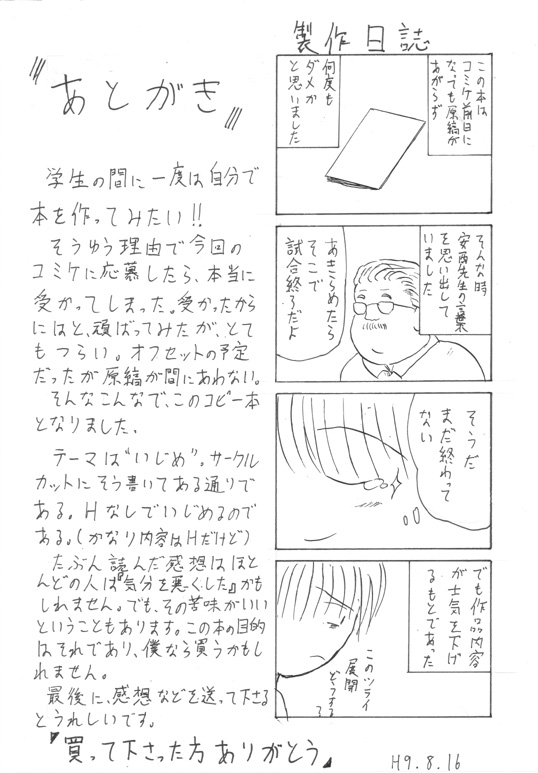 製作日誌
この本は
コミケ前日に
なっても原稿が
あがらず
何度も
ダメか
と思いました
そんな時
安西先生の言葉
を思い出して
いました
あきらめたら
そこで
試合終了だよ
そうだ
まだ終わって
ない
でも作品内容
が士気を下げ
るもとであった
このツライ
展開
どうする
〃あとがき〃
学生の間に一度は自分で
本を作ってみたい!!
そうゆう理由で今回の
コミケに応募したら、本当に
受かってしまった。受かったから
にはと、頑ばってみたが、とて
もつらい。オフセットの予定
だったが原稿が間にあわない。
そんなこんなで、このコピー本
となりました、
テーマは“いじめ”。サークル
カットにそう書いてある通りで
ある。Hなしでいじめるので
ある。(かなり内容はHだけど)
たぶん読んだ感想はほと
んどの人は『気分を悪くした』かも
しれません。でも、その苦味がいい
ということもあります。この本の目的
はそれであり、僕なら買うかもし
れません。
最後に、感想などを送って下さる
とうれしいです。
「買って下さった方ありがとう」
H9.8.16